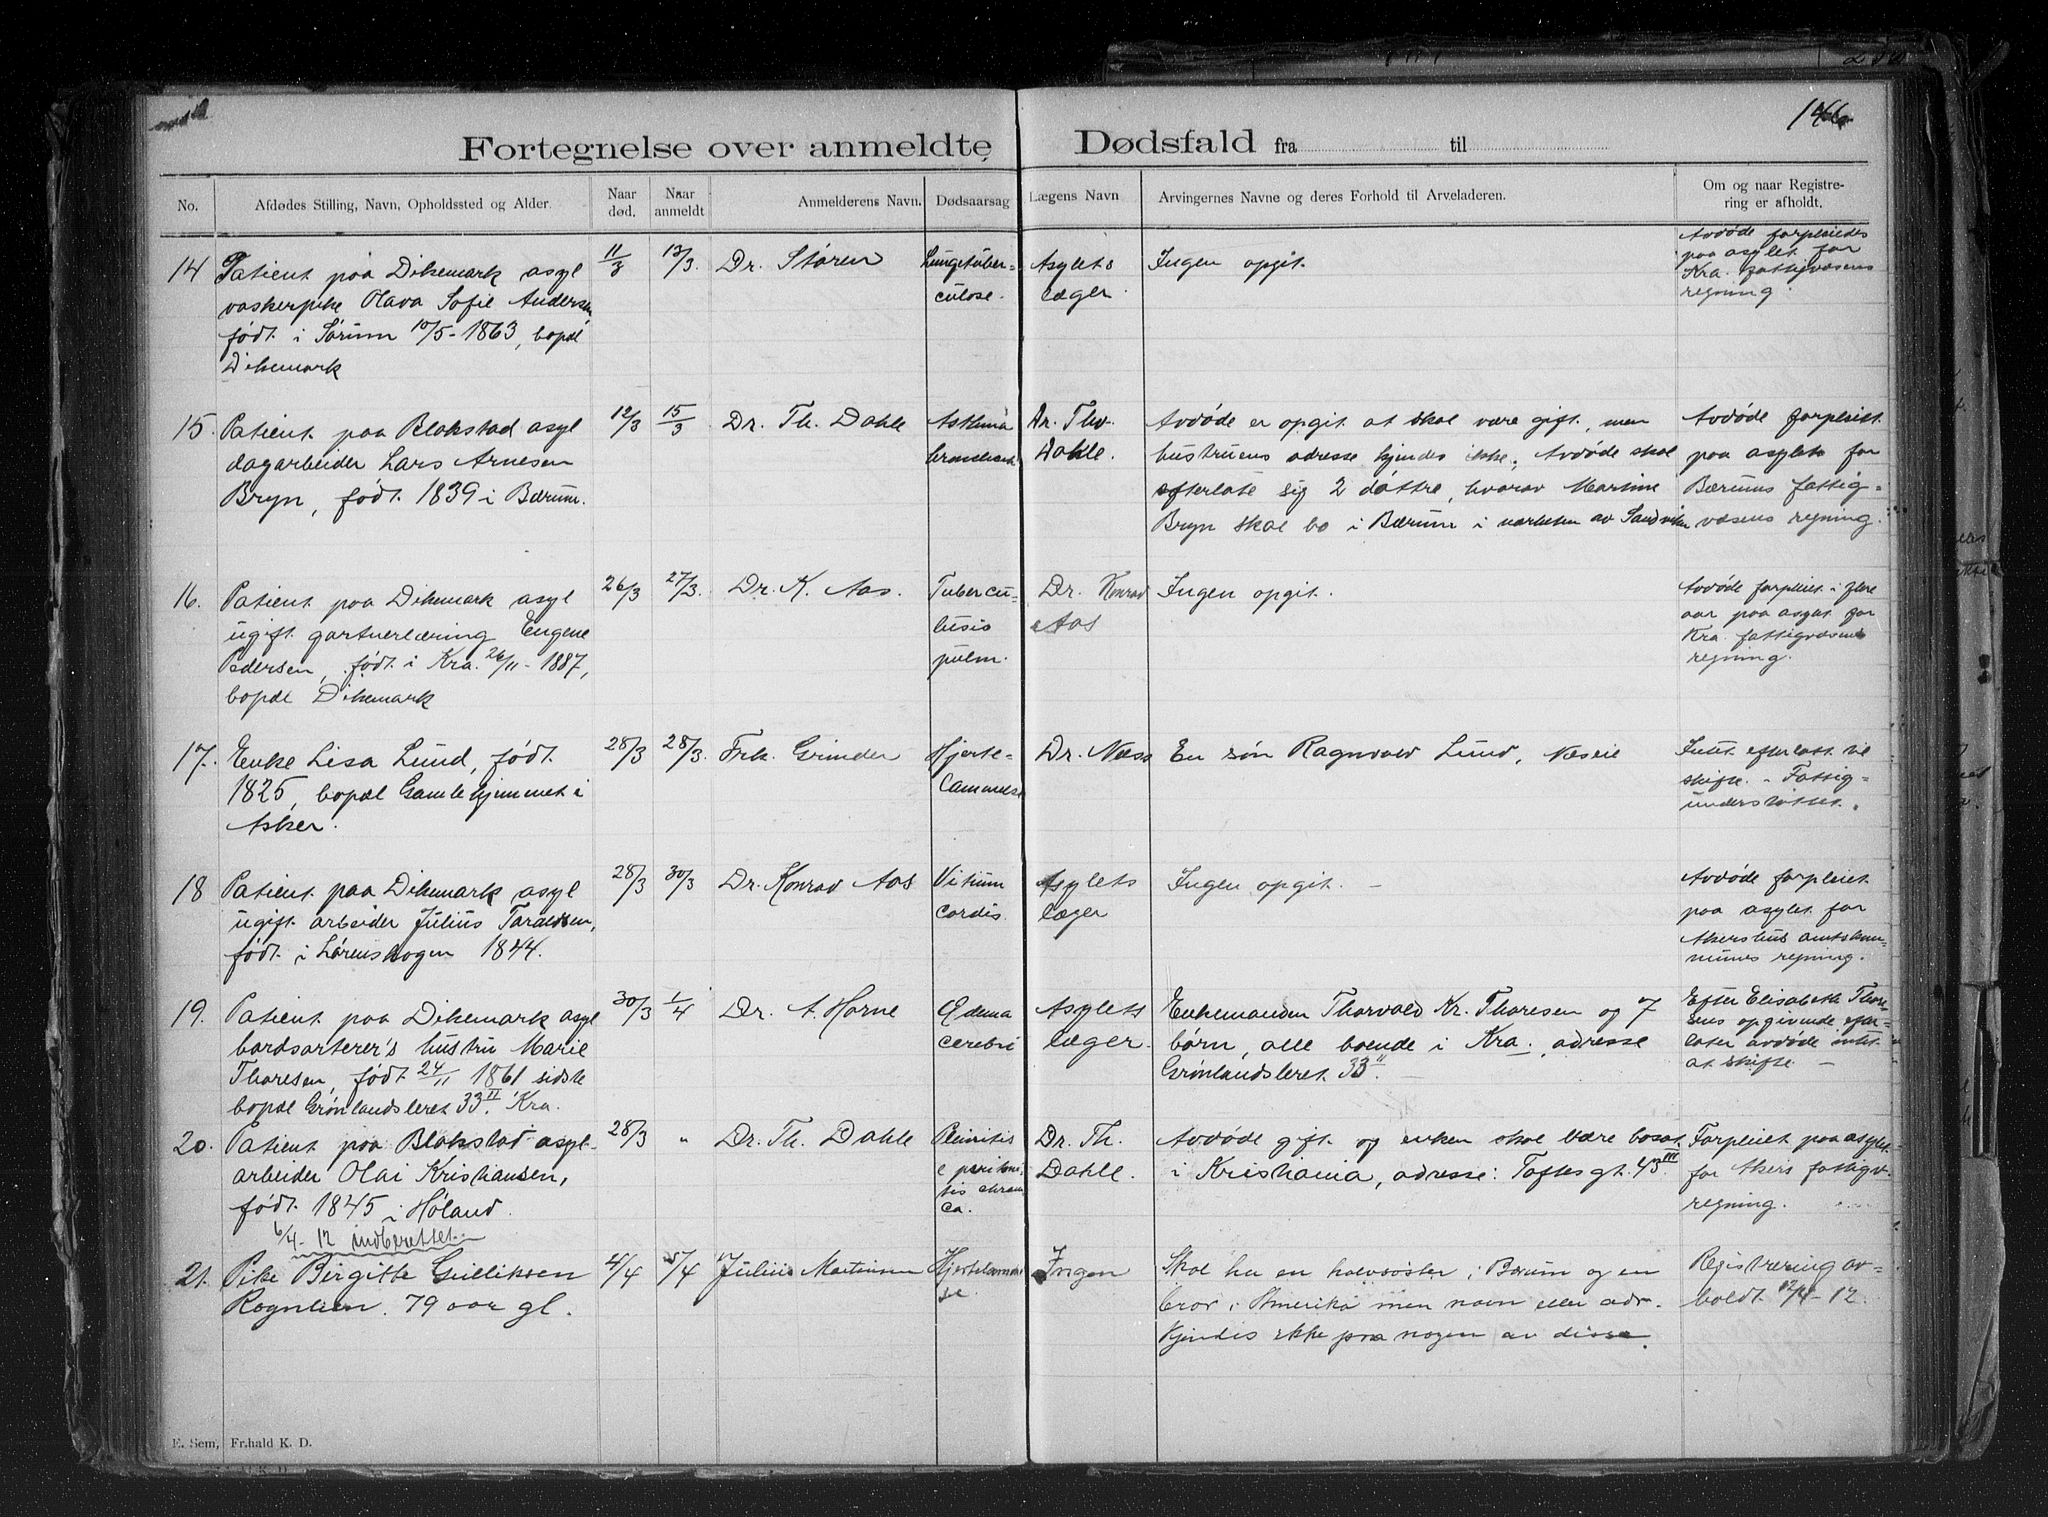 166
Fortegnelse over anmeldte Dødsfald fra til
No.
Afdødes Stilling, Navn, Opholdssted og Alder.
Naar død.
Naar anmeldt
Anmelderens Navn.
Dødsaarsag
Lægens Navn
Arvingernes Navne og deres Forhold til Arveladeren.
Om og naar Registre-
ring er afholdt.
14
Patient paa Dikemark asyl
vaskerpike Olava Sofie Andersen
født i Sørum 10/5-1863, bopæl
Dikemark
11/3
13/3.
Dr. Støren
Lungetuber-
culose.
Asylets
læger.
Ingen opgit.
Avdøde forpleiedes
paa asylet for
Kra. fattigvæsens
regning.
15.
Patient paa Blakstad asyl
dagarbeider Lars Arnesen
Bryn, født 1839 i Bærum.
12/3
15/3
Dr. Th. Dahle
Asthma
bronchiale
Dr. Thv.
Dahle.
Avdøde er opgit at skal være gift, men
hustruens adresse kjendes ikke; Avdøde skal
efterlate sig 2 døttre, hvorav Martine
Bryn skal bo i Bærum i nærheten av Sandviken
Avdøde forpleiet
paa asylets for
Bærums fattig-
væsens regning.
16.
Patient paa Dikemark asyl
ugift gartnerlæring Eugene
Pedersen, født i Kra. 26/11-1887,
bopæl Dikemark
26/3
27/3.
Dr. K. Aas.
Tubercu-
lusis
pulm.
Dr. Konrad
Aas
Ingen opgit.
Avdøde forpleiet i flere
aar paa asylet for
Kra. fattigvæsens
regning.
17.
Enke Lisa Lund, født
1825, bopæl Gamlehjemmet i
Asker.
28/3
28/3.
Frk. Grinder
Hjerte-
lammelse
Dr. Næss
En søn Ragnvald Lund, Næseie
Intet efterlatt til
skifte. - Fattig-
understøttet.
18
Patient paa Dikemark asyl
ugift arbeider Julius Taraldsen,
født i Lørenskogen 1844.
28/3
30/3
Dr. Konrad Aas
Vitium
Cordis.
Asylets
læger
Ingen opgit. -
Avdøde forpleiet
paa asylet for
Akershus amtskom-
munes regning.
19.
Patient paa Dikemark asyl
bordsorterer's hustru Marie
Thoresen, født 24/11 1861 sidste
bopæl Grønlandsleret 33 II. Kra.
30/3
1/4
Dr. A. Horne
Ødema
cerebri
Asylets
læger.
Enkemanden Thorvald Kr. Thoresen og 7
børn, alle boende i Kra. adresse
Grønlandsleret 33 II.
Efter Elisabeth Thore-
sens opgivende efter-
later avdøde intet
at skifte. -
20.
Patient paa Blakstad asyl-
arbeider Olai Kristiansen,
født 1845 i Høland.
6/4-12 indberettet.
28/3
"
Dr. Th. Dahle
Pleuritis
e peritoni-
tis chroni-
ca.
Dr. Th.
Dahle.
Avdøde gift og enken skal være bosat
i Kristiania, adresse: Toftesgt. 43 III
Forpleiet paa asylet
for Akers fattigv.
regning.
21.
Pike Birgitte Gulliksen
Rognlien. 79 aar gl.
4/4
5/4
Julius Martinsen
Hjertelammel-
se
Ingen
Skal ha en halvsøster i Bærum og en
bror i Amerika men navn eller adr.
kjendes ikke paa nogen av disse.
Registrering av-
holdt 12/4-12
E. Sem, Fr.hald K. D.